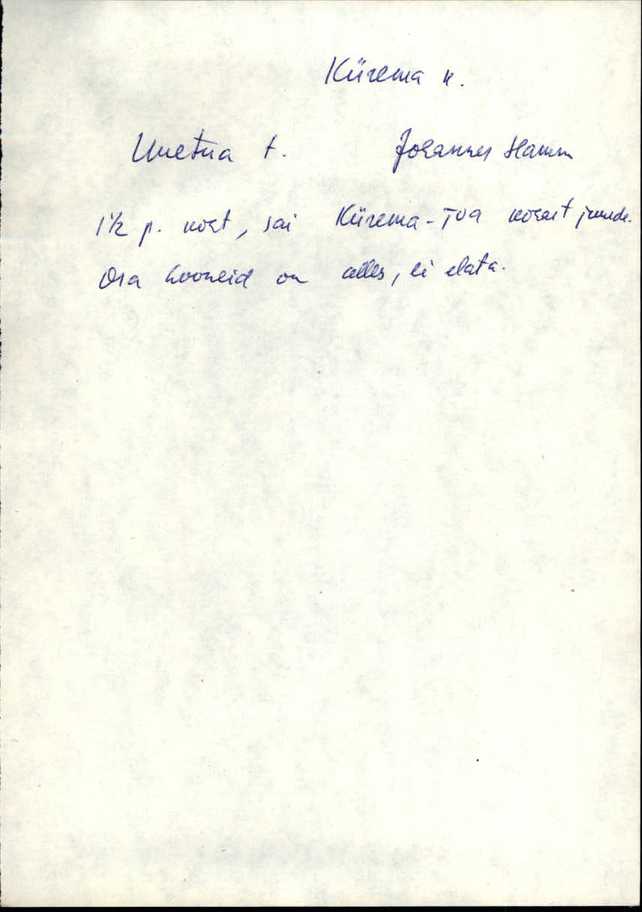 Kiirema k.
Uuetua t. Johannes Hamm
1½ p. koht, sai Kiirema-Toa kohast juurde.
Osa hooneid on alles, ei elata.